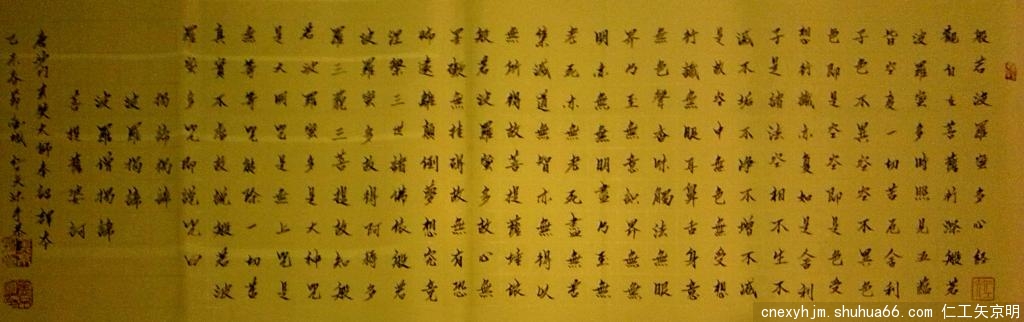 般若波羅蜜多心經
觀自在菩薩行深般若
波羅蜜多時照見五蘊
皆空度一切苦厄舍利
子色不異空空不異色
色即是空空即是色受
想行識亦復如是舍利
子是諸法空相不生不
滅不垢不淨不增不減
是故空中無色無受想
行識無眼耳鼻舌身意
無色聲香味觸法無眼
界乃至無意識界無無
明亦無無明盡乃至無
老死亦無老死盡無苦
集滅道無智亦無得以
無所得故菩提薩埵依
般若波羅蜜多故心無
罣礙無挂礙故無有恐
怖遠離顛倒夢想究竟
涅槃三世諸佛依般若
波羅蜜多故得阿耨多
羅三藐三菩提故知般
若波羅蜜多是大神咒
是大明咒是無上咒是
無等等咒能除一切苦
真實不虛故說般若波
羅蜜多咒即說咒曰
揭諦揭諦
波羅揭諦
波羅增揭諦
菩提薩婆訶
唐沙门玄奘大師奉詔譯本
乙未春節
cnexyhjm.shuhua66.com 仁工矢京明